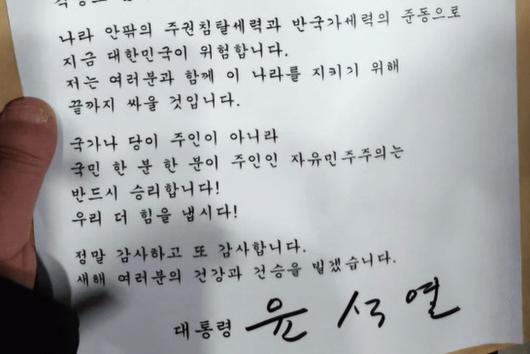 나라 안팎의 주권침탈세력과 반국가세력의 준동으로
지금 대한민국이 위험합니다.
저는 여러분과 함께 이 나라를 지키기 위해
끝까지 싸울 것입니다.
국가나 당이 주인이 아니라
국민 한 분 한 분이 주인인 자유민주주의는
반드시 승리합니다!
우리 더 힘을 냅시다!
정말 감사하고 또 감사합니다.
새해 여러분의 건강과 건승을 빌겠습니다.
대통령 윤석열